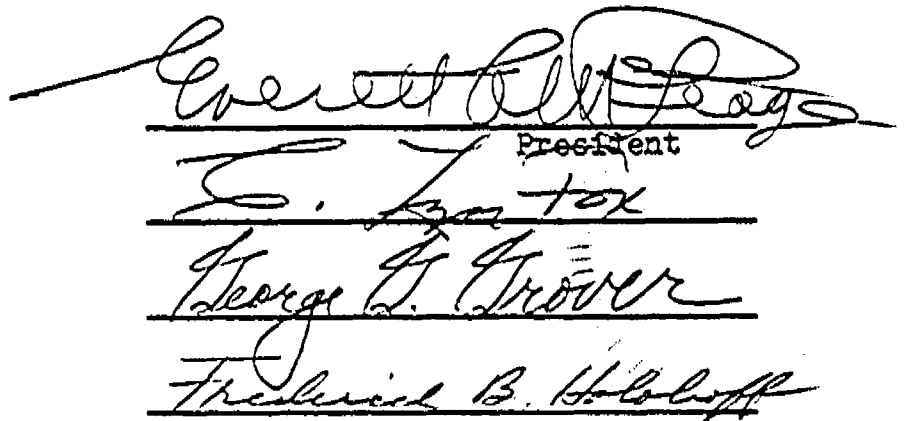 Everett C. McKeage
President
E. Lyn Fox
George G. Grover
Frederick B. Holoboff